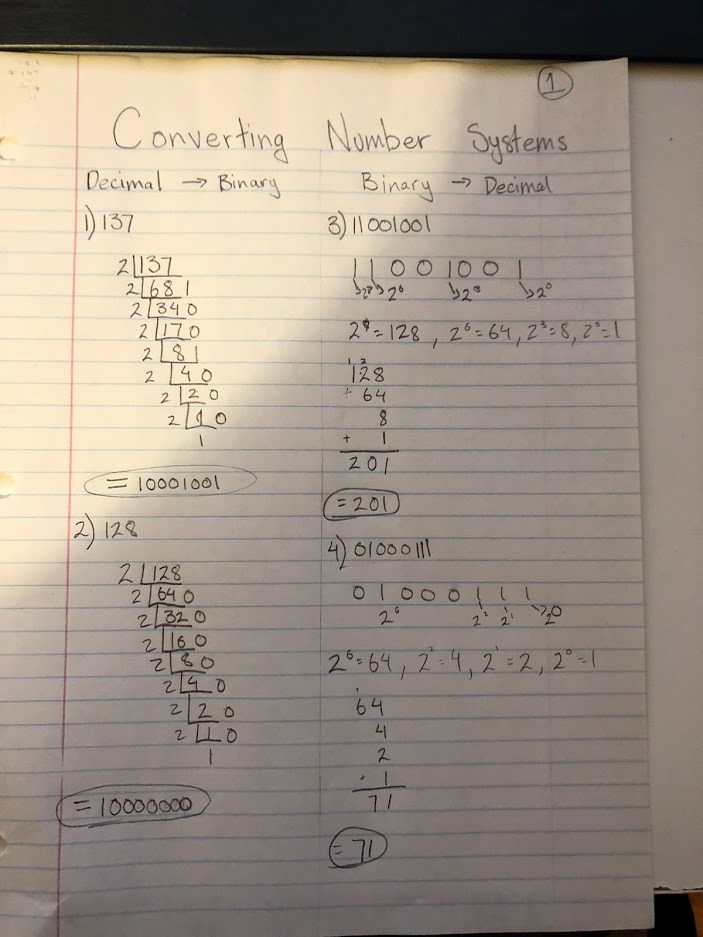 1
Converting Number Systems
Decimal → Binary
1) 137
2 137
2 68 1
2 34 0
2 17 0
2 8 1
2 4 0
2 2 0
2 1 0
1
= 10001001
2) 128
2 128
2 64 0
2 32 0
2 16 0
2 8 0
2 4 0
2 2 0
2 1 0
1
= 10000000
Binary → Decimal
3) 11001001
1 1 0 0 1 0 0 1
2⁷ 2⁶ 2³ 2⁰
2⁷=128, 2⁶=64, 2³=8, 2⁰=1
1 2
128
+ 64
8
+ 1
201
= 201
4) 01000111
0 1 0 0 0 1 1 1
2⁶ 2² 2¹ 2⁰
2⁶=64, 2²=4, 2¹=2, 2⁰=1
1
64
4
2
+ 1
71
= 71